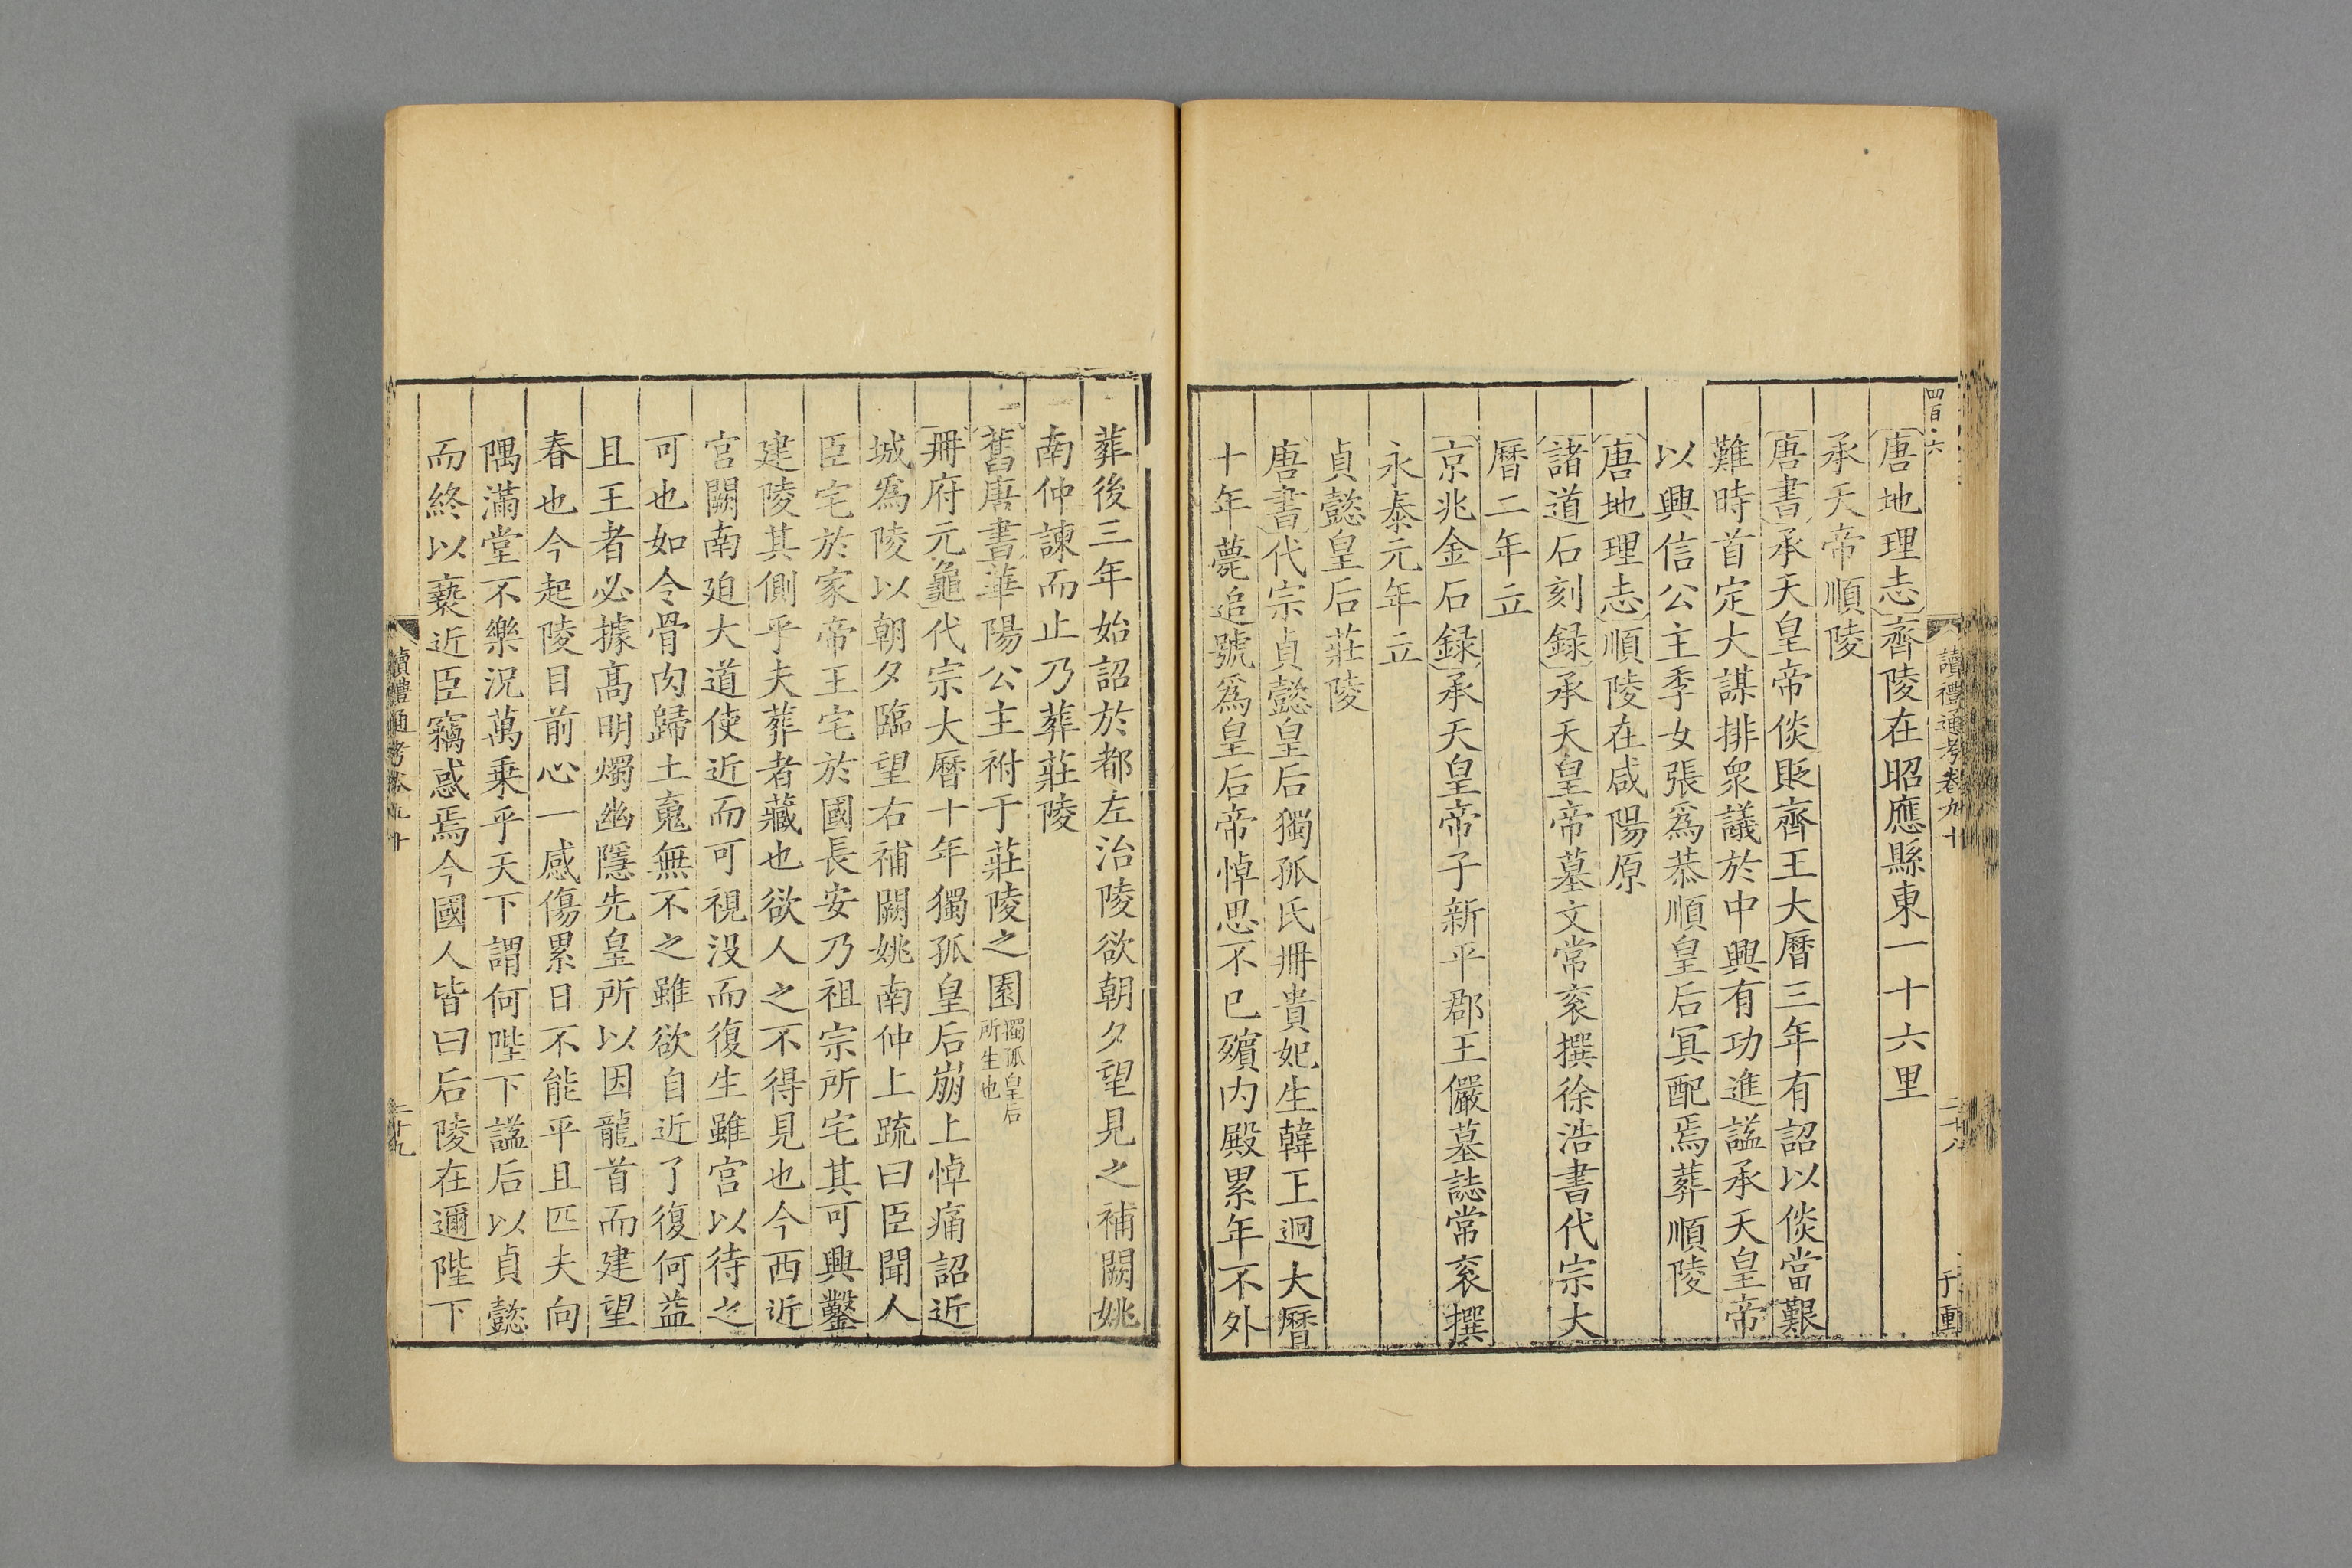 四百六
讀禮通考卷九十
二十八
子重
唐地理志齊陵在昭應縣東一十六里
承天帝順陵
唐書承天皇帝倓貶齊王大曆三年有詔以倓當艱
難時首定大謀排衆議於中興有功進謚承天皇帝
以興信公主季女張爲恭順皇后冥配焉葬順陵
唐地理志順陵在咸陽原
諸道石刻録承天皇帝墓文常衮撰徐浩書代宗大
曆二年立
京兆金石録承天皇帝子新平郡王儼墓誌常衮撰
永泰元年立
貞懿皇后莊陵
唐書代宗貞懿皇后獨孤氏冊貴妃生韓王迥大曆
十年薨追號爲皇后帝悼思不已殯内殿累年不外
葬後三年始詔於都左治陵欲朝夕望見之補闕姚
南仲諫而止乃葬莊陵
舊唐書華陽公主祔于莊陵之園獨孤皇后所生也
冊府元龜代宗大曆十年獨孤皇后崩上悼痛詔近
城爲陵以朝夕臨望右補闕姚南仲上疏曰臣聞人
臣宅於家帝王宅於國長安乃祖宗所宅其可興鑿
建陵其側乎夫葬者藏也欲人之不得見也今西近
宫闕南迫大道使近而可視没而復生雖宫以待之
可也如令骨肉歸土䰟無不之雖欲自近了復何益
且王者必據髙明燭幽隱先皇所以因龍首而建望
春也今起陵目前心一感傷累日不能平且匹夫向
隅滿堂不樂況萬乗乎天下謂何陛下謚后以貞懿
而終以褻近臣竊惑焉今國人皆曰后陵在邇陛下
讀禮通考卷九十
二十九